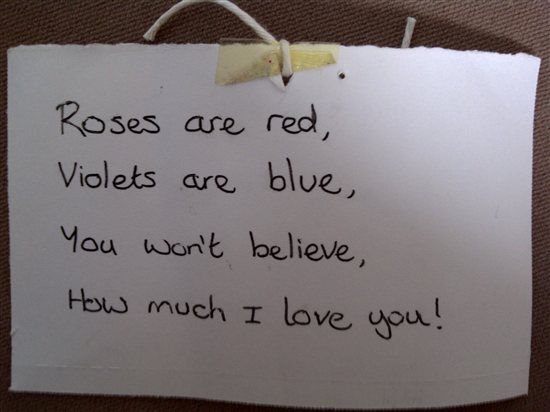 Roses are red,
Violets are blue,
You won't believe,
How much I love you!